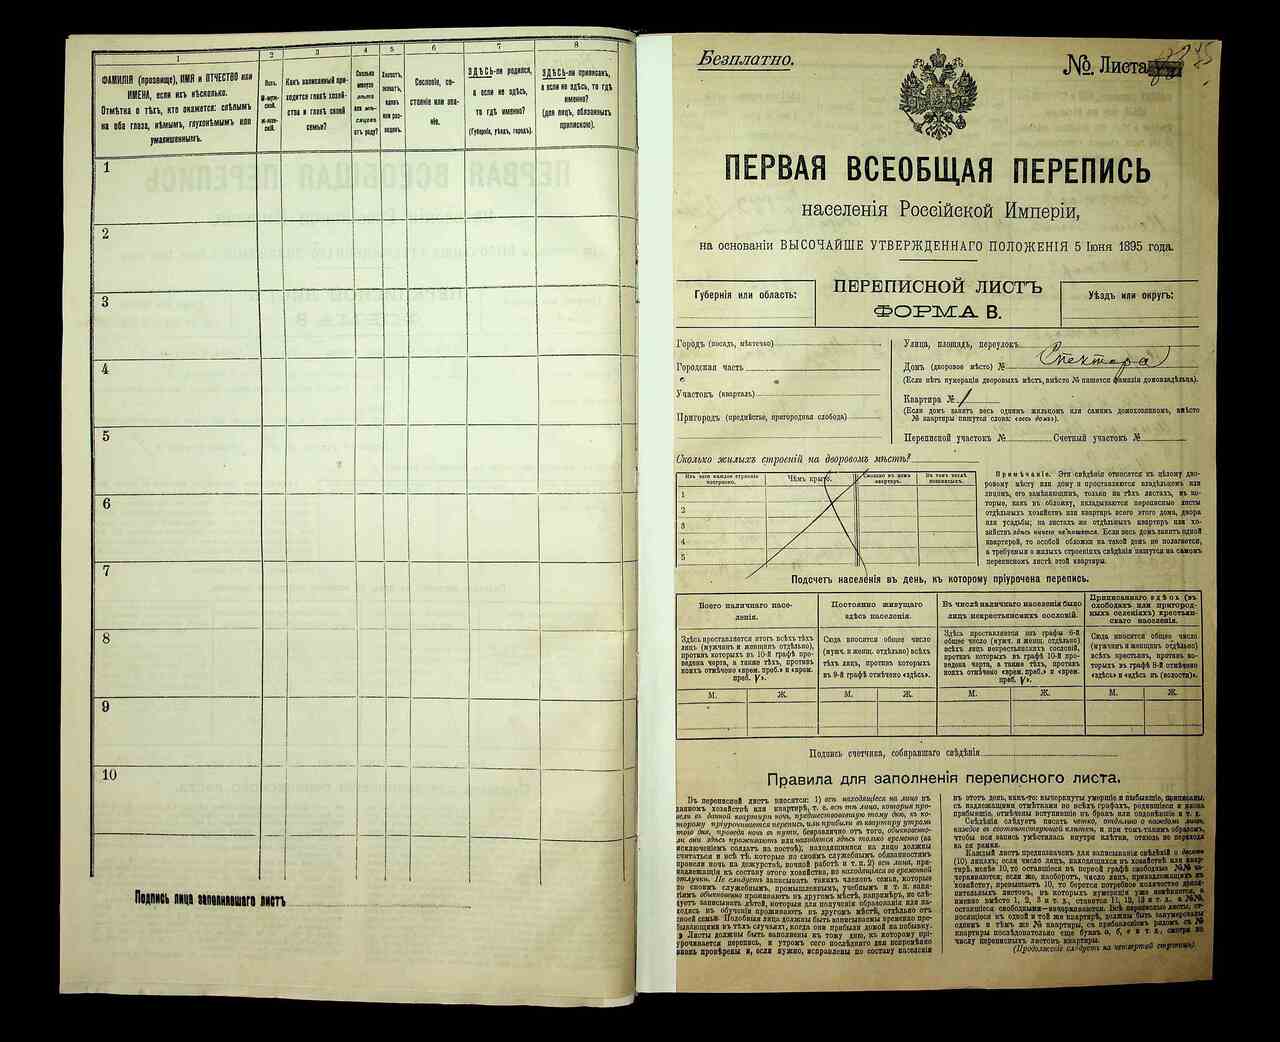 1
2
3
4
5
6
7
8
ФАМИЛІЯ (прозвище), ИМЯ и ОТЧЕСТВО или
ИМЕНА, если ихъ нѣсколько.
Отмѣтка о тѣхъ, кто окажется: слѣпымъ
на оба глаза, нѣмымъ, глухонѣмымъ или
умалишеннымъ.
Полъ.
М-муж-
ской.
Ж-жен-
скій.
Какъ записанный при-
ходится главѣ хозяй-
ства и главѣ своей
семьи?
Сколько
минуло
лѣтъ
или мѣ-
сяцевъ
отъ роду?
Холостъ,
женатъ,
вдовъ
или раз-
веденъ.
Сословіе, со-
стояніе или зва-
ніе.
ЗДѢСЬ-ли родился,
а если не здѣсь,
то гдѣ именно?
(Губернія, уѣздъ, городъ).
ЗДѢСЬ-ли приписанъ,
а если не здѣсь, то гдѣ
именно?
(для лицъ, обязанныхъ
припискою).
1
2
3
4
5
6
7
8
9
10
Подпись лица заполнившаго листъ
Безплатно.
№ Листа
ПЕРВАЯ ВСЕОБЩАЯ ПЕРЕПИСЬ
населенія Россійской Имперіи,
на основаніи ВЫСОЧАЙШЕ УТВЕРЖДЕННАГО ПОЛОЖЕНІЯ 5 Іюня 1895 года.
Губернія или область:
ПЕРЕПИСНОЙ ЛИСТЪ
ФОРМА В.
Уѣздъ или округъ:
Городъ (посадъ, мѣстечко)
Городская часть
Участокъ (кварталъ)
Пригородъ (предмѣстье, пригородная слобода)
Улица, площадь, переулокъ
Домъ (дворовое мѣсто) № Спектора
(Если нѣтъ нумераціи дворовыхъ мѣстъ, вмѣсто № пишется фамилія домовладѣльца).
Квартира № 1
(Если домъ занятъ весь однимъ жильцомъ или самимъ домохозяиномъ, вмѣсто
№ квартиры пишутся слова: «весь домъ»).
Переписной участокъ № Счетный участокъ №
Сколько жилыхъ строеній на дворовомъ мѣстѣ?
Изъ чего каждое строеніе
построено.
Чѣмъ крыто.
Сколько въ домѣ
квартиръ.
Въ томъ числѣ
1
2
3
4
5
Примѣчаніе. Эти свѣдѣнія относятся къ цѣлому дво-
ровому мѣсту или дому и проставляются владѣльцемъ или
лицомъ, его замѣняющимъ, только на тѣхъ листахъ, въ ко-
торые, какъ въ обложку, вкладываются переписные листы
отдѣльныхъ хозяйствъ или квартиръ всего этого дома, двора
или усадьбы; на листахъ же отдѣльныхъ квартиръ или хо-
зяйствъ здѣсь ничего не пишется. Если весь домъ занятъ одной
квартирой, то особой обложки на такой домъ не полагается,
а требуемыя о жилыхъ строеніяхъ свѣдѣнія пишутся на самомъ
переписномъ листѣ этой квартиры.
Подсчетъ населенія въ день, къ которому пріурочена перепись.
Всего наличнаго насе-
ленія.
Постоянно живущаго
здѣсь населенія.
Въ числѣ наличнаго населенія было
лицъ некрестьянскихъ сословій.
Приписаннаго здѣсь (въ
слободахъ или пригород-
ныхъ селеніяхъ) крестьян-
скаго населенія.
Здѣсь проставляется итогъ всѣхъ тѣхъ
лицъ (мужчинъ и женщинъ отдѣльно),
противъ которыхъ въ 10-й графѣ про-
ведена черта, а также тѣхъ, противъ
коихъ отмѣчено «врем. преб.» и «врем.
преб. V».
Сюда вносится общее число
(мужч. и женщ. отдѣльно) всѣхъ
тѣхъ лицъ, противъ которыхъ
въ 9-й графѣ отмѣчено «здѣсь».
Здѣсь проставляется изъ графы 6-й
общее число (мужч. и женщ. отдѣльно)
всѣхъ лицъ некрестьянскихъ сословій,
противъ которыхъ въ графѣ 10-й про-
ведена черта, а также тѣхъ, противъ
коихъ отмѣчено «врем. преб.» и «врем.
преб. V».
Сюда вносится общее число
(мужчинъ и женщинъ отдѣльно)
всѣхъ крестьянъ, противъ ко-
торыхъ въ графѣ 8-й отмѣчено
«здѣсь» и «здѣсь въ (волости)».
М. Ж. М. Ж. М. Ж. М. Ж.
Подпись счетчика, собиравшаго свѣдѣнія
Правила для заполненія переписного листа.
Въ переписной листъ вносятся: 1) всѣ находящіеся на лицо въ
данномъ хозяйствѣ или квартирѣ, т. е. всѣ тѣ лица, которыя про-
вели въ данной квартирѣ ночь, предшествовавшую тому дню, къ ко-
торому пріурочивается перепись, или прибыли въ квартиру утромъ
того дня, проведя ночь въ пути, безразлично отъ того, обыкновенно-
ли они здѣсь проживаютъ или находятся здѣсь только временно (за
исключеніемъ солдатъ на постоѣ), находящимися на лицо должны
считаться и всѣ тѣ, которые по своимъ служебнымъ обязанностямъ
провели ночь на дежурствѣ, ночной работѣ и т. п. 2) всѣ лица, при-
надлежащія къ составу этого хозяйства, но находящіяся во временной
отлучкѣ. Не слѣдуетъ записывать такихъ членовъ семьи, которые
по своимъ служебнымъ, промышленнымъ, учебнымъ и т. п. заня-
тіямъ обыкновенно проживаютъ въ другомъ мѣстѣ, напримѣръ, не слѣ-
дуетъ записывать дѣтей, которыя для полученія образованія или на-
ходясь въ обученіи проживаютъ въ другомъ мѣстѣ, отдѣльно отъ
своей семьи. Подобныя лица должны быть записываемы временно пре-
бывающими въ тѣхъ случаяхъ, когда они прибыли домой на побывку.
Листы должны быть заполнены къ тому дню, къ которому прі-
урочивается перепись, и утромъ сего послѣдняго дня непремѣнно
вновь провѣрены и, если нужно, исправлены по составу населенія
въ этотъ день, какъ-то: вычеркнуты умершіе и выбывшіе, приписаны,
съ надлежащими отмѣтками во всѣхъ графахъ, родившіеся и вновь
прибывшіе, отмѣчены вступившіе въ бракъ или овдовѣвшіе и т. п.
Свѣдѣнія слѣдуетъ писать четко, отдѣльно о каждомъ лицѣ,
каждое въ соотвѣтствующей клѣткѣ, и при томъ такимъ образомъ,
чтобы вся запись умѣстилась внутри клѣтки, отнюдь не переходя
за ея рамки.
Каждый листъ предназначенъ для записыванія свѣдѣній о десяти
(10) лицахъ; если число лицъ, находящихся въ хозяйствѣ или квар-
тирѣ, менѣе 10, то оставшіеся въ первой графѣ свободные №№ за-
черкиваются; если же, наоборотъ, число лицъ, принадлежащихъ къ
хозяйству, превышаетъ 10, то берется потребное количество допол-
нительныхъ листовъ, въ которыхъ нумерація уже измѣняется, а
именно вмѣсто 1, 2, 3 и т. д., ставится 11, 12, 13 и т. д., а №№,
оставшіеся свободными—зачеркиваются. Всѣ переписные листы, от-
носящіеся къ одной и той же квартирѣ, должны быть занумерованы
однимъ и тѣмъ же № квартиры, съ прибавленіемъ рядомъ съ №
квартиры послѣдовательно еще буквъ а, б, в и т. д., смотря по
числу переписныхъ листовъ квартиры.
(Продолженіе слѣдуетъ на четвертой страницѣ).